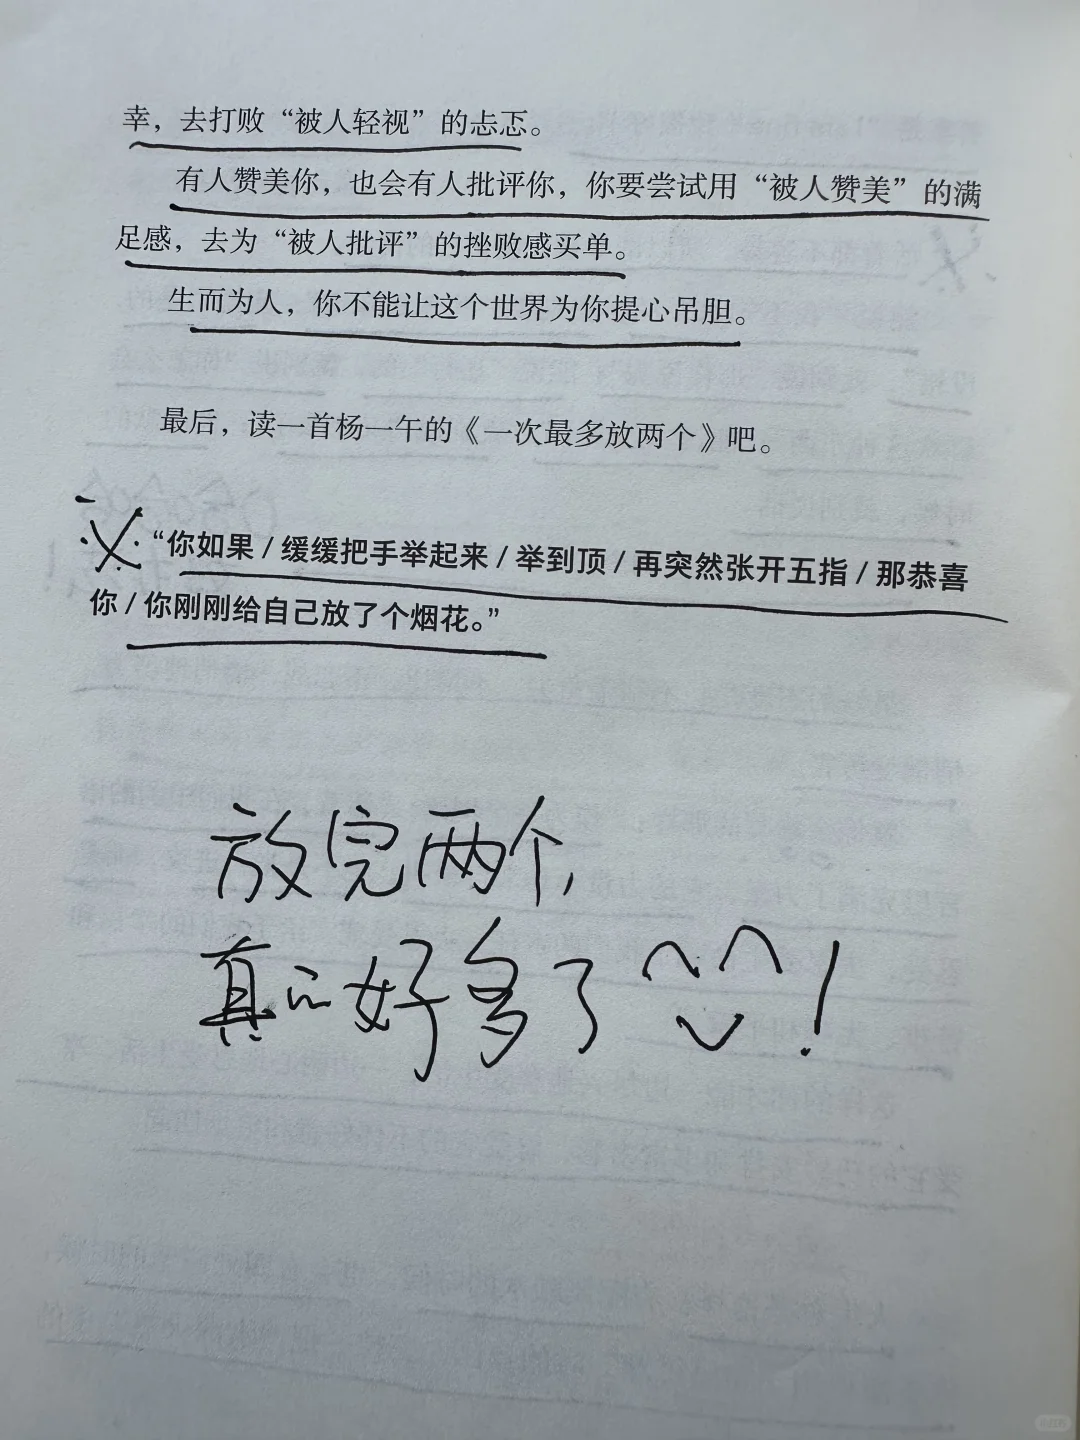 幸，去打败“被人轻视”的忐忑。
有人赞美你，也会有人批评你，你要尝试用“被人赞美”的满
足感，去为“被人批评”的挫败感买单。
生而为人，你不能让这个世界为你提心吊胆。
最后，读一首杨一午的《一次最多放两个》吧。
“你如果 / 缓缓把手举起来 / 举到顶 / 再突然张开五指 / 那恭喜
你 / 你刚刚给自己放了个烟花。”
放完两个，
真的好多了！